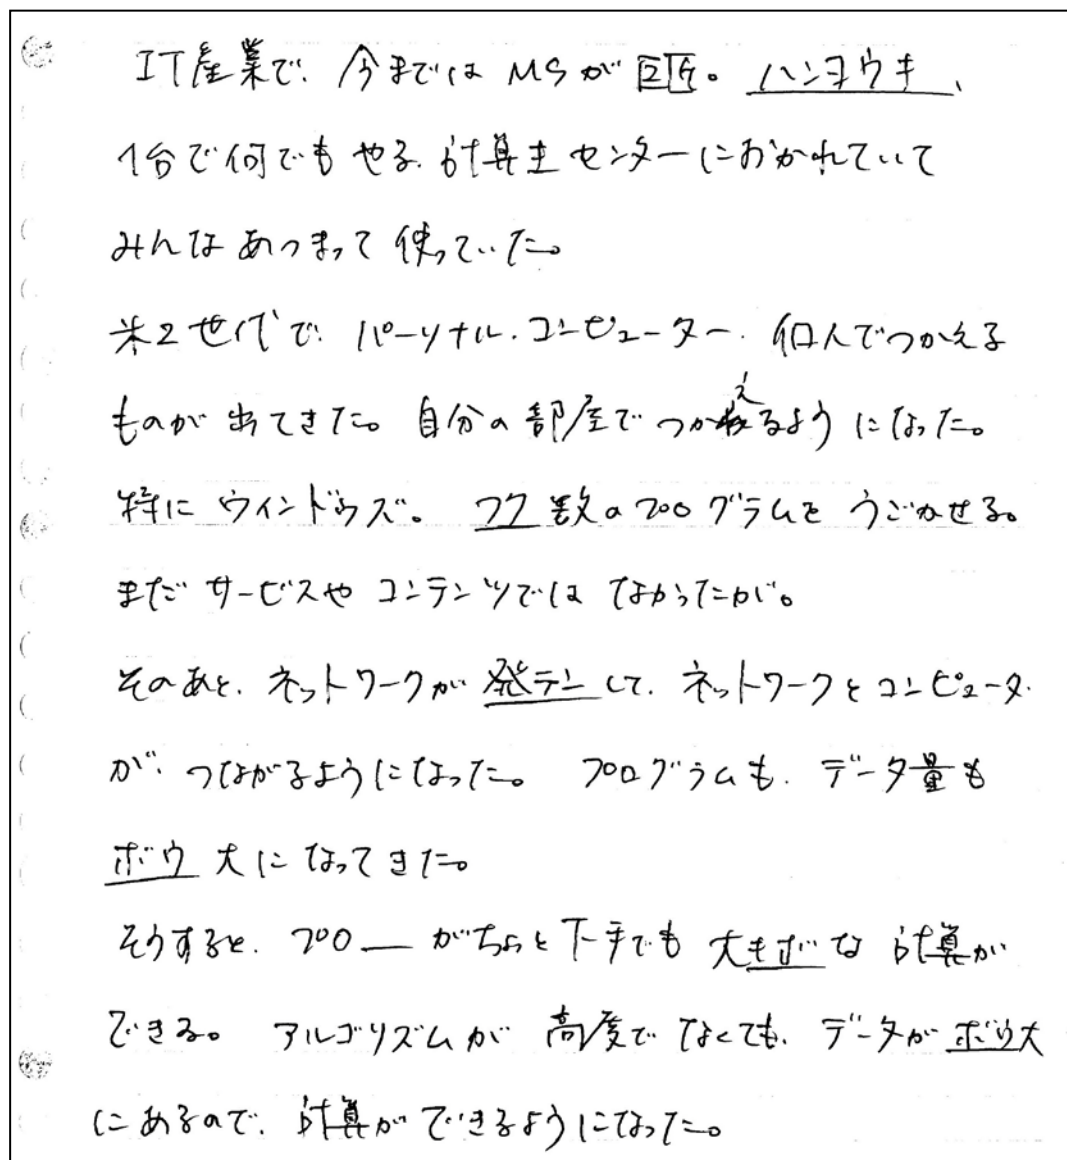 IT産業で、今まではMSが巨匠。ハンヨウキ、
1台で何でもやる、計算主センターにおかれていて
みんなあつまって使っていた。
米2世代で、パーソナル・コンピューター、個人でつかえる
ものが出てきた。自分の部屋でつかえるようになった。
特にウィンドウズ。フク数のプログラムをうごかせる。
まだサービスやコンテンツではなかったが。
そのあと、ネットワークが発テンして、ネットワークとコンピュータ
が、つながるようになった。プログラムも、データ量も
ボウ大になってきた。
そうすると、プロ—がちょっと下手でも大キボな計算が
できる。アルゴリズムが高度でなくても、データがボウ大
にあるので、計算ができるようになった。